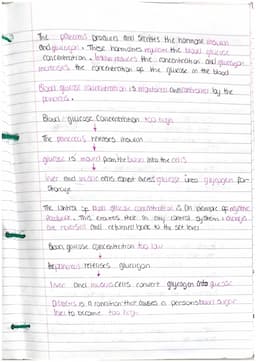 The pancreas produces and secretes the hormone insulin
and glucagon. These hormones regulate the blood glucose
concentration. Insulin reduces the concentration and glucagon
increases the concentration of the glucose in the blood
Blood glucose concentration is monitored and controlled by the
pancreas.
Blood glucose concentration too high
The pancreas releases insulin
glucose is moved from the blood into the cells
liver and muscle cells convert excess glucose into glycogen for
storage
The control of blood glucose concentration is an example of negative
feedback. This ensures that in any control system, changes
are reversed and returned back to the set level
Blood glucose concentration too low
the pancreas releases glucagon
liver and muscle cells convert glycogen into glucose
Diabetes is a condition that causes a persons blood sugar
level to become too high